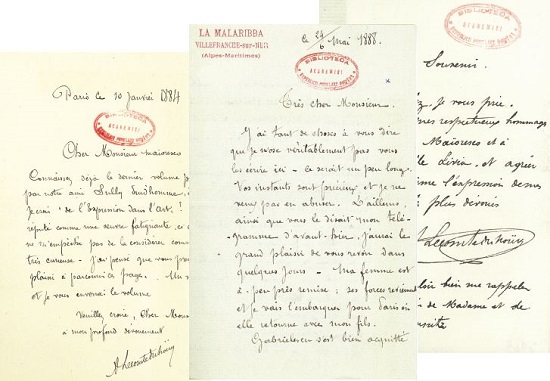 Paris le 10 janvier 1884
Cher Monsieur Maioresco
Connaissez déjà le dernier volume
par notre ami Sully Prudhomme
"de l'Expression dans l'Art"
réputé comme une œuvre fatigante,
ne m'empêche pas de la considérer comme
très curieuse. J'ai pensé que vous
plaisir à parcourir ce
et je vous envoie le volume
Veuillez croire, Cher Monsieur
à mon profond dévouement
A Lecomte du Noüy
LA MALARIBBA
VILLEFRANCHE-sur-MER
(Alpes-Maritimes)
ce Mai 1888.
BIBLIOTECA
ACADEMIEI
Très cher Monsieur.
J'ai tant de choses à vous dire
que je n'ose véritablement pas vous
les écrire ici - ce serait un peu long.
Vos instants sont précieux et je ne
veux pas en abuser. D'ailleurs,
ainsi que vous le disait mon télé-
gramme d'avant-hier, j'aurai le
grand plaisir de vous revoir dans
quelques jours - Ma femme est
à peu près remise, ses forces reviennent
et je vais l'embarquer pour Paris où
elle retourne avec mon fils.
Gabrielescu s'est bien acquitté
BIBLIOTECA
ACADEMIEI
Souvenir.
je vous prie.
respectueux hommages
Maioresco et à
Livia. et agréer
l'expression de mes
plus dévoués
Lecomte du Noüy
bien me rappeler
de Madame et de